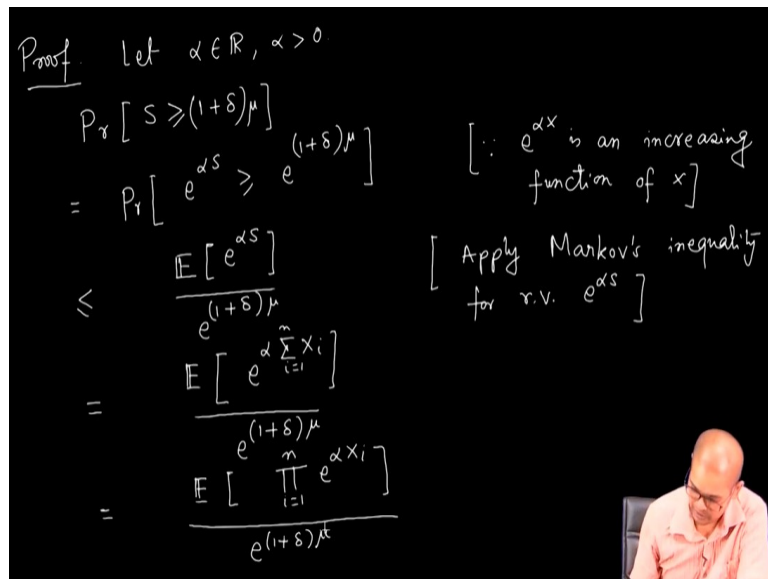 Proof. Let α ∈ ℝ, α > 0.
Pr[ S ≥ (1+δ)μ ]
= Pr[ e^{αS} ≥ e^{(1+δ)μ} ]
[∵ e^{αx} is an increasing
function of x]
≤ E[e^{αS}] / e^{(1+δ)μ}
[ Apply Markov's inequality
for r.v. e^{αS} ]
= E[ e^{α ∑_{i=1}^{n} X_i} ] / e^{(1+δ)μ}
= E[ ∏_{i=1}^{n} e^{αX_i} ] / e^{(1+δ)μ}